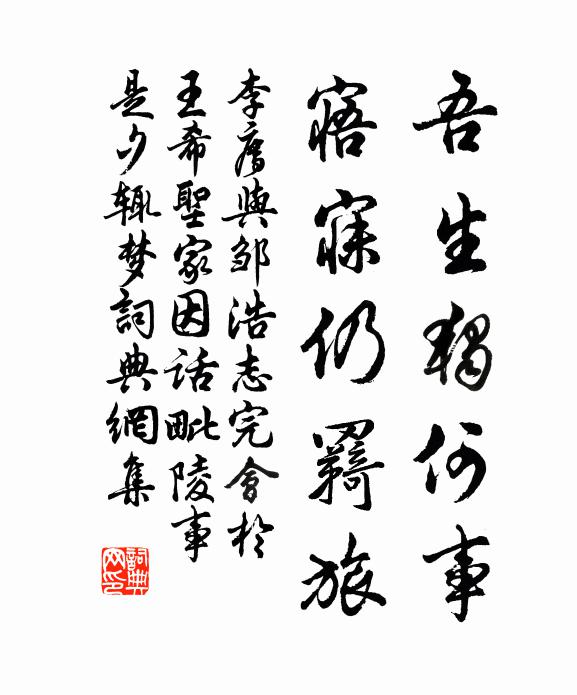 吾生獨何事
寤寐仍羇旅
李廌與鄒浩志完會於
王希聖家因話毗陵事
是夕輒梦詞典網集
詞典网印